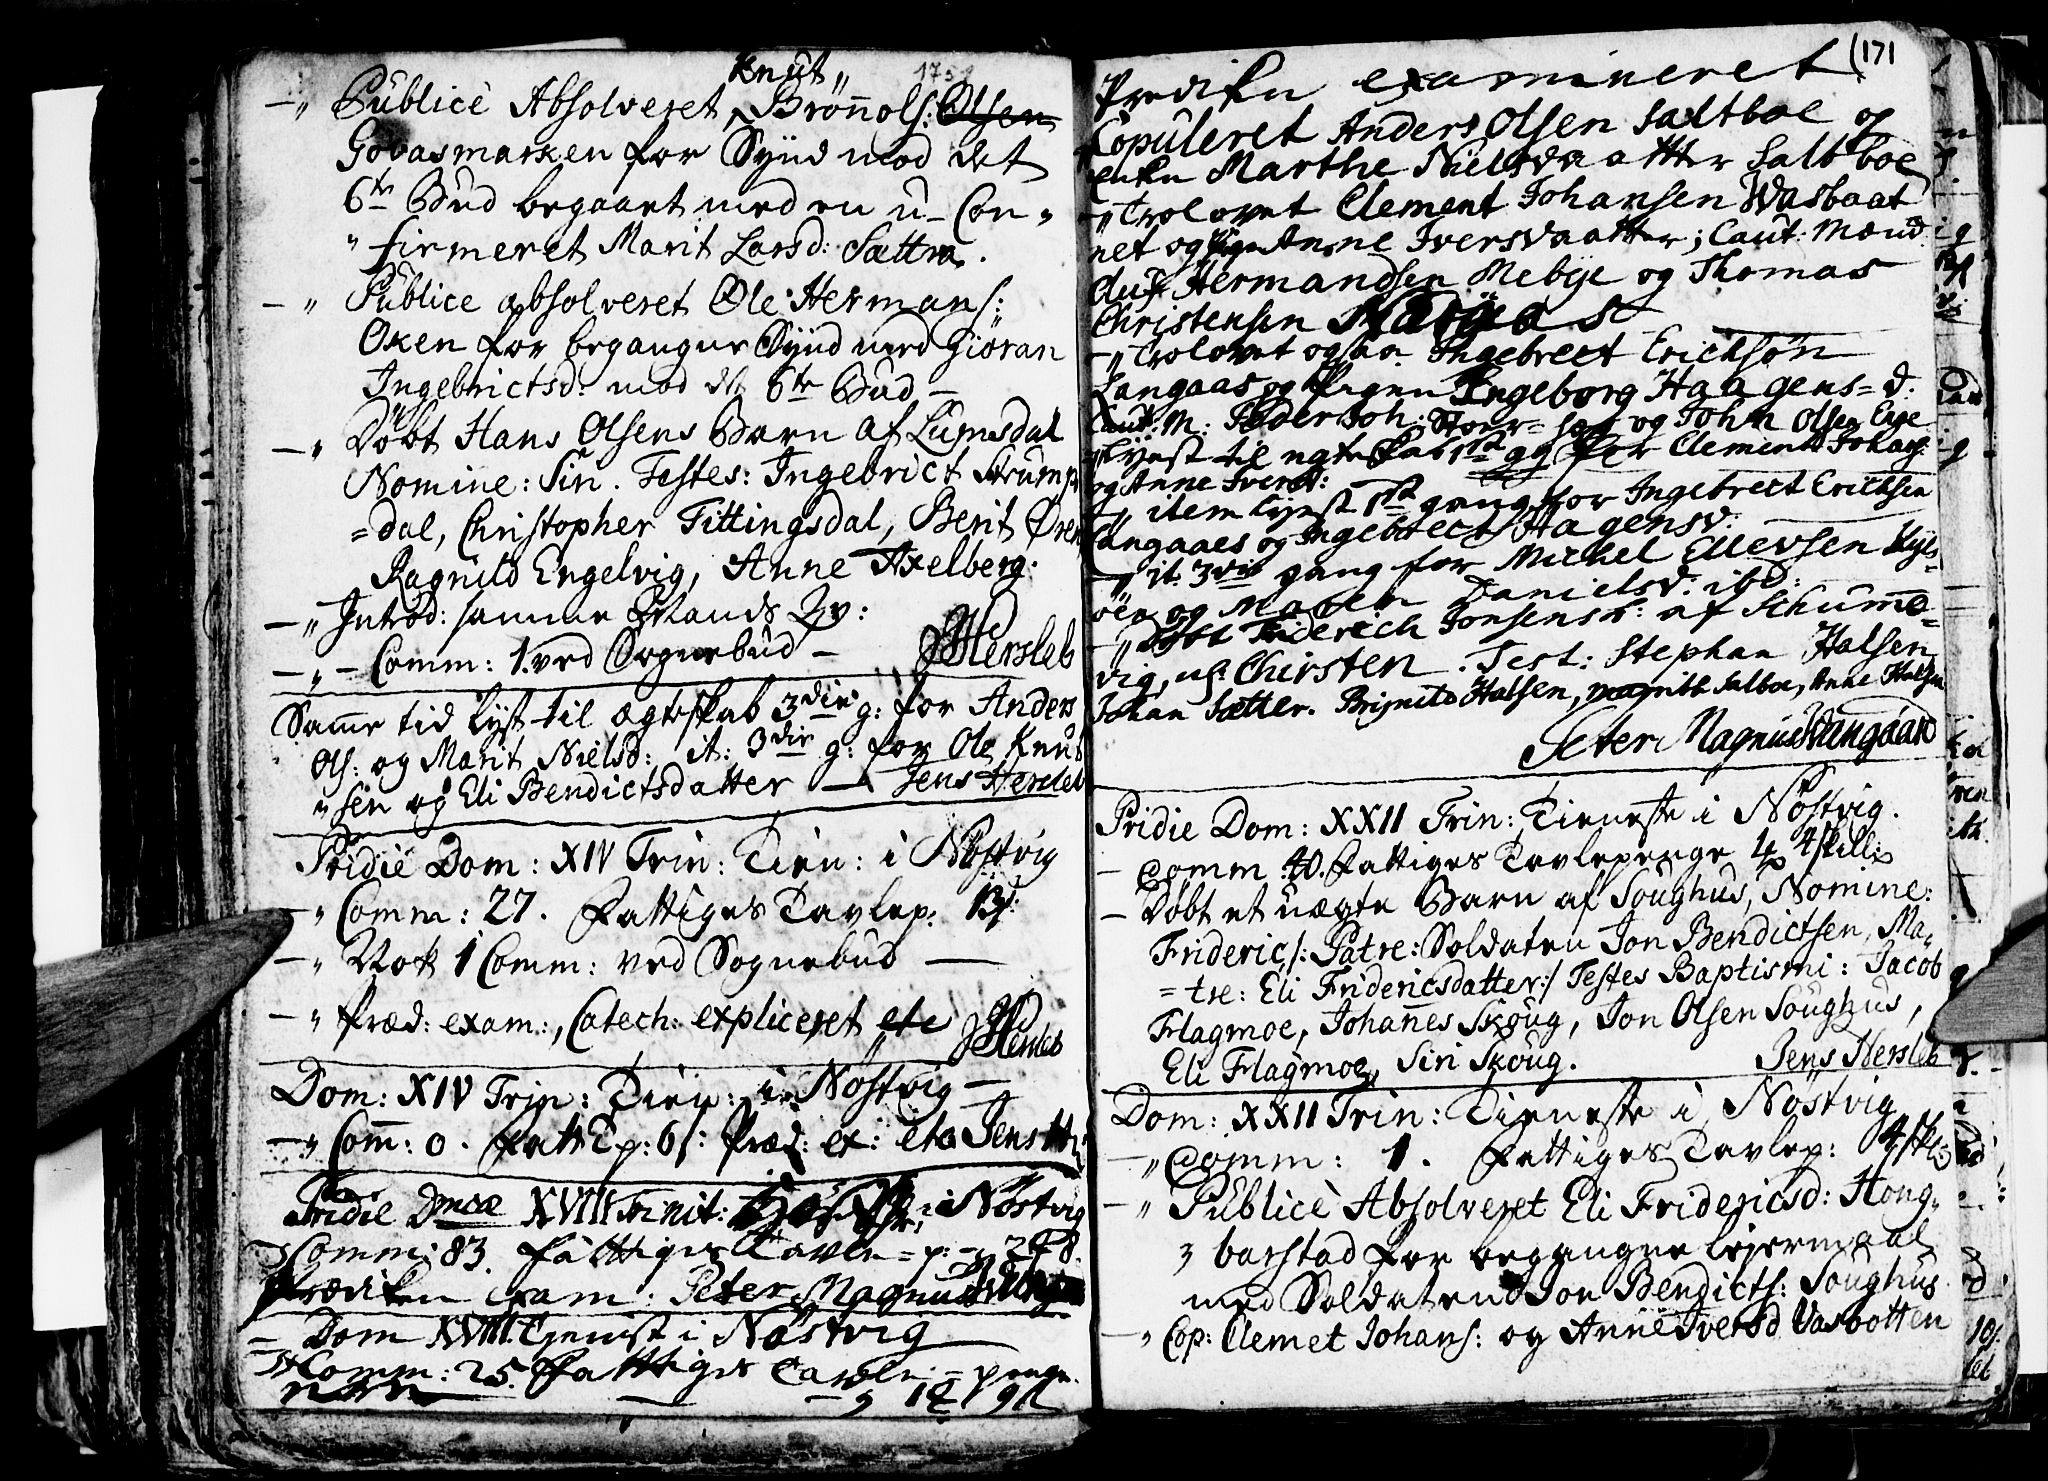 1751
Knut
—„ Publicè Absolveret Brönnols: Olsen
Govasmarken for Synd mod det
6te Bud begaaet med en u-Con„
„firmeret Marit Larsd: Sættra.
—„ Publice absolveret Ole Hermans:
Oxen for begangne Synd med Giöran
Ingebrictsd: mod det 6te Bud —
—„ Döbt Hans Olsens Barn af Lumsdal
Nomine: Siri. Testes: Ingebrict Strumps
=dal, Christopher Fittingsdal, Berit Ören
Ragnild Engelvig, Anne Axelberg.
—„ Introd: samme Mands Qv:
—„— Comm: 1. ved Sognebud — JHersleb
Samme tid lyst til ægteskab 3die g: for Anders
Ols: og Marit Nielsd: it: 3die g: for Ole Knud
„sen og Eli Bendictsdatter — Jens Hersleb
Pridie Dom: XIV Trin: Tien: i Nöstvig
—„ Comm: 27. Fattiges Tavlep: 13s:
—„ Nok 1 Comm: ved Sognebud —
—„ Præd: exam:, Catech: expliceret etc JHersleb
Dom: XIV Trin: Tien: i Nöstvig —
—„ Com: 0. Fatt: Tp: 6s: Præd: ex: etc Jens H:
Pridie Dmcæ XVIII Trinit: i Nöstvig
Comm: 83. Fattiges Tavle=p:
Prædiken exam: Peter Magnus
— Dom XVIII Tienist i Nöstvig
Comm: 25. Fattigis Tavle=penge
(171
Prediken examineret
Copuleret Anders Olsen Saltboe og
Marthe Nielsdaatter Saltboe
—„ Trolovet Clement Johansen Wasbaat
net og Pigen Anne Iversdaatter; Caut: Mænd
Oluf Hermandsen Mebye og Thomas
Christensen
—„ Trolovet ogsaa Ingebrect Ericksøn
Langaas og Pigen Ingeborg Haagens=d.
Caut: M: Peder Joh: Stoer= og John Olsen Enge
—„ Lyst til egteskab 1st gg for Clement Johans:
og Anne Iversd:
—„ item lynst 1st gang for Ingebrect Ericksen
Langaaes og Ingebrect Hagensd:
—„ it: 3die gang for Michel Ellevsen Kyls-
öen og Maren Danielsd: ibd:
—„ Döbt Friderich Jonsens b: af Schumme=
vig, n: Chirsten. Test: Stephan Halsen
Johan Sætter. Brynild Halsen, Saltboe, Anne Halsen
Peter Magnus Wangaard
Pridie Dom: XXII Trin: Tieneste i Nöstvig.
— Comm 40. Fattiges Tavlepenge 4 skill:
— Döbt et uægte Barn af Soughus, Nomine:
Frideric/: Patre: Soldaten Jon Bendictsen, Ma„
=tre: Eli Fridericsdatter:/ Testes Baptismi: Jacob
Flagmoe, Johannes Skoug, Jon Olsen Soughus,
Eli Flagmoe, Siri Skoug. Jens Hersleb
Dom: XXII Trin: Tieneste i Nöstvig
—„ Comm: 1. Fattiges Tavlep: 4 sk:
—„ Publicè Absolveret Eli Fridericsd: Hong„
„barstad for begangne lejermaal
med Soldaten Jon Bendicts: Soughus
—„ Cop: Clemet Johans: og Anne Iversd Vasbotten